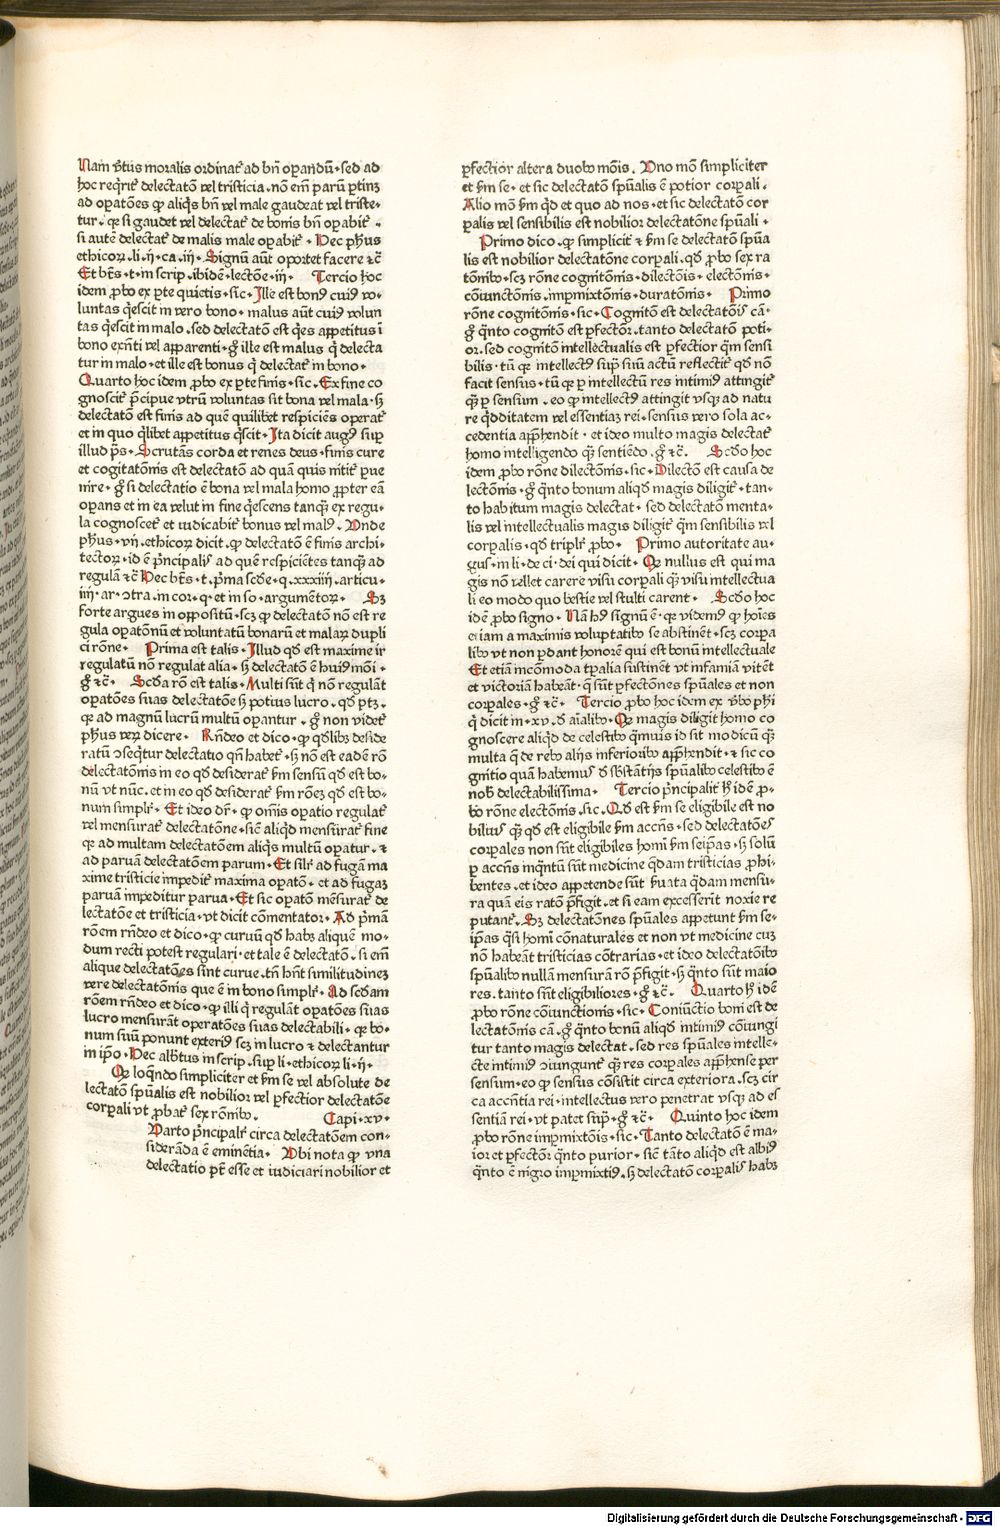 Nam v̄tus moralis ordinat᷒ ad bn̄ oꝑandū · sed ad
hoc req̄rit᷒ delectatō vel tristicia . nō em̄ parū ꝑtinꝫ
ad oꝑatōes ꝙ aliq̄s bn̄ vel male gaudeat vel triste-
tur . ꝙ si gaudet vel delectat᷒ de bonis bn̄ oꝑabit᷒ .
si autē delectat᷒ de malis male oꝑabit᷒ · Hec ph̄us
ethicoꝝ · li · ij · ca · iij · Signū aūt oportet facere ⁊c̄
Et bt̄s · t · in scrip . ibidē · lectōe · iij · Tercio hoc
idem ꝓbo ex ꝑte quietis · sic · Ille est bonꝰ cuiꝰ vo-
luntas q̄escit in vero bono · malus aūt cuiꝰ volun
tas q̄escit in malo . sed delectatō est q̄es appetitus ī
bono exn̄ti vel apparenti · g̊ ille est malus q̄ delecta
tur in malo · et ille est bonus q̄ delectat᷒ in bono ·
Quarto hoc idem ꝓbo ex ꝑte finis · sic · Ex fine co
gnoscit᷒ p̄cipue vtrū voluntas sit bona vel mala · sꝫ
delectatō est finis ad quē quilibet respiciēs operat᷒
et in quo q̄libet appetitus q̄scit · Ita dicit augꝰ suꝑ
illud ps̄ · Scrutās corda et renes deus · finis cure
et cogitatōnis est delectatō ad quā quis nitit᷒ ꝑue
nire · g̊ si delectatio ē bona vel mala homo ꝓpter eā
oꝑans et in ea velut in fine q̄escens tanqꝫ̄ ex regu-
la cognoscet᷒ et iudicabit᷒ bonus vel malꝰ . Vnde
ph̄us · vij · ethicoꝝ dicit . ꝙ delectatō ē finis archi-
tectoꝝ · id ē p̄ncipalis ad quē respiciētes tanqꝫ̄ ad
regulā ⁊c̄ Hec bt̄s · t . p̄ma scd̄e · q . xxxiiij . articu-
iiij · ar · ↄtra . in cor · q · et in so · argumētoꝝ · Sꝫ
forte argues in oppositū · scꝫ ꝙ delectatō nō est re
gula oꝑatōnū et voluntatū bonarū et malaꝝ dupli
ci rōne · Prima est talis · Illud qd̄ est maxime ir
regulatū nō regulat alia · sꝫ delectatō ē huiꝰ mōi ·
g̊ ⁊c̄ · Scd̄a rō est talis · Multi sūt q̄ nō regulāt
oꝑatōes suas delectatōe sꝫ potius lucro . qd̄ ptꝫ .
ꝙ ad magnū lucrū multū oꝑantur . g̊ non videt᷒
ph̄us veꝝ dicere · Rn̄deo et dico . ꝙ qd̄libꝫ deside
ratū ↄseq̄tur delectatio qn̄ habet᷒ · sꝫ nō est eadē rō
delectatōnis in eo qd̄ desiderat᷒ ẜm sensū qd̄ est bo-
nū vt nūc . et in eo qd̄ desiderat᷒ ẜm rōeꝫ qd̄ est bo-
num simplr̄ · Et ideo dr̄ · ꝙ om̄is oꝑatio regulat᷒
vel mensurat᷒ delectatōne · sic̄ aliqd̄ mēsurat᷒ fine
ꝙ ad multam delectatōem aliq̄s multū oꝑatur . ⁊
ad paruā delectatōem parum · Et silr̄ ad fugā ma
xime tristicie impedit᷒ maxima oꝑatō · et ad fugaꝫ
paruā impeditur parua · Et sic oꝑatō mēsurat᷒ de
lectatōe et tristicia · vt dicit cōmentator · Ad p̄mā
rōem rn̄deo et dico · ꝙ curuū qd̄ habꝫ aliquē mo-
dum recti potest regulari · et tale ē delectatō . si em̄
alique delectatōes sint curue . tn̄ hn̄t similitudineꝫ
vere delectatōnis que ē in bono simplr̄ · Ad scd̄am
rōem rn̄deo et dico · ꝙ illi q̄ regulāt oꝑatōes suas
lucro mensurāt operatōes suas delectabili · ꝙ bo-
num suū ponunt exteriꝰ scꝫ in lucro ⁊ delectantur
in ip̄o · Hec albt̄us in scrip . suꝑ li · ethicoꝝ li · ij ·
Qꝫ loq̄ndo simpliciter et ẜm se vel absolute de
lectatō spūalis est nobilior vel ꝑfectior delectatōe
corꝑali vt ꝓbat᷒ sex rōnibꝰ . Capi · xv ·
Parto p̄ncipalr̄ circa delectatōem con-
siderāda ē eminētia · Vbi nota ꝙ vna
delectatio pt̄ esse et iudiciari nobilior et
ꝑfectior altera duobꝰ mōis . Vno mō simpliciter
et ẜm se · et sic delectatō spūalis ē potior corꝑali .
Alio mō ẜm qd̄ et quo ad nos · et sic delectatō cor
ꝑalis vel sensibilis est nobilior delectatōne spūali ·
Primo dico . ꝙ simplicit᷒ ⁊ ẜm se delectatō spūa
lis est nobilior delectatōne corꝑali . qd̄ ꝓbo sex ra
tōnibꝰ · scꝫ rōne cognitōnis · dilectōis · electōnis ·
cōiunctōnis . impmixtōnis · duratōnis · Primo
rōne cognitōnis · sic · Cognitō est delectatōis cā ·
g̊ q̄nto cognitō est ꝑfectoꝛ . tanto delectatō poti-
or . sed cognitō intellectualis est ꝑfectior q̄m sensi
bilis · tū ꝙ intellectꝰ suꝑ suū actū reflectit᷒ qd̄ nō
facit sensus · tū ꝙ ꝑ intellectū res intimiꝰ attingit᷒
qꝫ̄ ꝑ sensum . eo ꝙ intellectꝰ attingit vsqꝫ ad natu
re q̄dditatem vel essentiaꝫ rei · sensus vero sola ac-
cedentia appħendit · et ideo multo magis delectat᷒
homo intelligendo qꝫ̄ sentiēdo . g̊ ⁊c̄ . Scd̄o hoc
idem ꝓbo rōne dilectōnis · sic · Dilectō est causa de
lectōnis · g̊ q̄nto bonum aliqd̄ magis diligit᷒ · tan-
to habitum magis delectat · sed delectatō menta-
lis vel intellectualis magis diligit᷒ q̄m sensibilis vl
corꝑalis · qd̄ triplr̄ ꝓbo · Primo autoritate au-
gus · in li · de ci · dei qui dicit · Qꝫ nullus est qui ma
gis nō vellet carere visu corꝑali qꝫ̄ visu intellectua
li eo modo quo bestie vel stulti carent · Scd̄o hoc
idē ꝓbo signo · Nā hꝰ signū ē · ꝙ videmꝰ ꝙ hoīes
etiam a maximis voluptatibꝰ se abstinēt · scꝫ corꝑa
libꝰ vt non ꝑdant honorē qui est bonū intellectuale
Et etiā incōmoda tꝑalia sustinēt vt infamiā vitēt
et victoriā habeāt · q̄ sūt ꝑfectōnes spūales et non
corꝑales · g̊ ⁊c̄ · Tercio ꝓbo hoc idem ex v̄bo phi
q̄ dicit in · xv · d̄ aīalibꝰ · Qꝫ magis diligit homo co
gnoscere aliqd̄ de celestibꝰ q̄muis id sit modicū qꝫ̄
multa q̄ de rebꝰ alijs inferioribꝰ appħendit · ⁊ sic co
gnitio quā habemus d̄ sb̄stātijs spūalibꝰ celestibꝰ ē
nob̄ delectabilissima · Tercio p̄ncipalit᷒ h̄ idē ꝓ-
bo rōne electōnis . sic . Qd̄ est ẜm se eligibile est no
biliꝰ qꝫ̄ qd̄ est eligibile ẜm accn̄s · sed delectatōes
corꝑales non sūt eligibiles homī ẜm seip̄as · sꝫ solū
ꝑ accn̄s inq̄ntū sūt medicine q̄dam tristicias ꝓhi-
bentes . et ideo appetende sūt ẜuata q̄dam mensu-
ra quā eis ratō p̄figit . et si eam excesserit noxie re
putant᷒ . Sꝫ delectatōnes spūales appetunt ẜm se-
ip̄as q̄si homī cōnaturales et non vt medicine cuꝫ
nō habeāt tristicias cōtrarias · et ideo delectatōibꝰ
spūalibꝰ nullā mensurā rō p̄figit · sꝫ q̄nto sūt maio
res . tanto sūt eligibiliores · g̊ ⁊c̄ . Quarto h̄ idē
ꝓbo rōne cōiunctionis · sic · Coniūctio boni est de
lectatōnis cā . g̊ q̄nto bonū aliqd̄ intimiꝰ cōiungi
tur tanto magis delectat . sed res spūales intelle-
cte intimiꝰ ↄiungunt᷒ qꝫ̄ res corꝑales appħense per
sensum · eo ꝙ sensus cōsistit circa exteriora . scꝫ cir
ca accn̄tia rei · intellectus vero penetrat vsqꝫ ad es
sentiā rei · vt patet supͣ · g̊ ⁊c̄ · Quinto hoc idem
ꝓbo rōne impmixtōis · sic · Tanto delectatō ē ma-
ior et ꝑfectoꝛ q̄nto purior · sic̄ tāto aliqd̄ est albiꝰ
q̄nto ē nigro impmixtiꝰ . sꝫ delectatō corꝑalis habꝫ
Digitalisierung gefördert durch die Deutsche Forschungsgemeinschaft - DFG